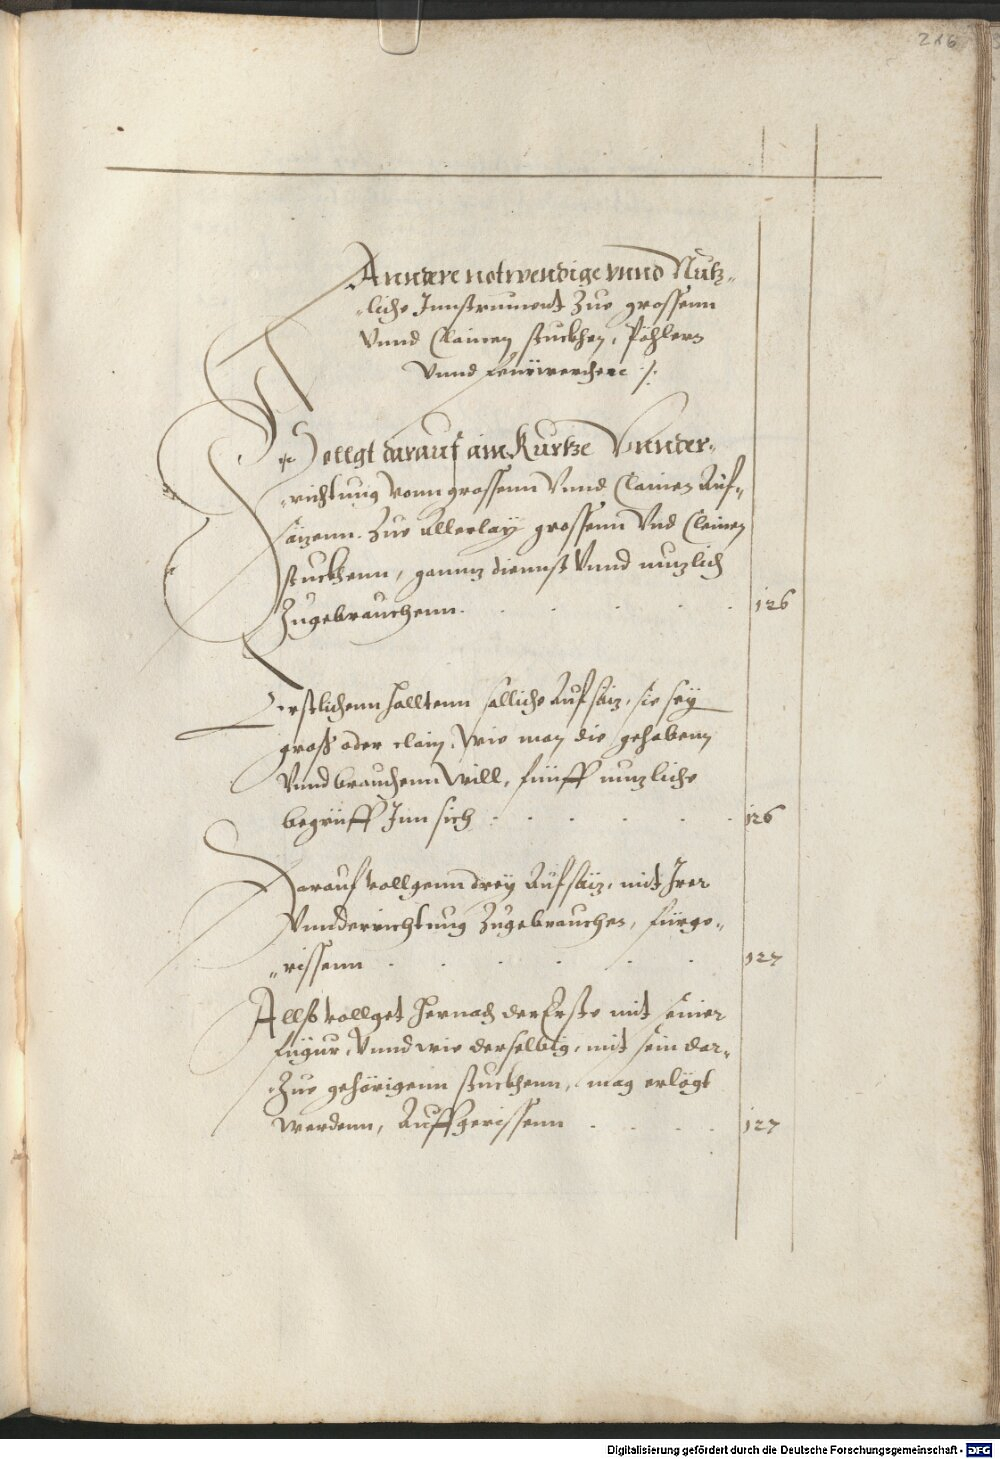 216
Anndere notwendige vnnd Nutz¬
liche Innstrument Zue grossenn
Vnnd Clainen stuckhen, Pöhlern
Vnnd feürwerchenn ./.
Vollgt darauf ain Kurtze Vnnder¬
richtung vonn grossenn Vnnd Clainen Auf¬
säzenn. Zue Allerlaÿ grossenn Vnd Cleinen
stuckhenn, gannz diennst Vnnd nuzlich
Zugebrauchenn. 126
Erstlichenn halltenn solliche Aufsäz, sie seÿ
groß oder clain, Wie man die gehabenn
Vnnd brauchenn Will, fünff nuzliche
begrüff Inn sich 126
Darauf vollgenn dreÿ Aufsäz, mit Irer
Vnnderrichtung Zugebrauchen, fürge¬
rissenn 127
Allß vollget hernach der Erste mit seiner
figur, Vnnd wie derselbig, mit sein dar¬
Zue gehörigenn stuckhenn, mag erlögt
werdenn, Auffgerissenn 127
Digitalisierung gefördert durch die Deutsche Forschungsgemeinschaft - DFG